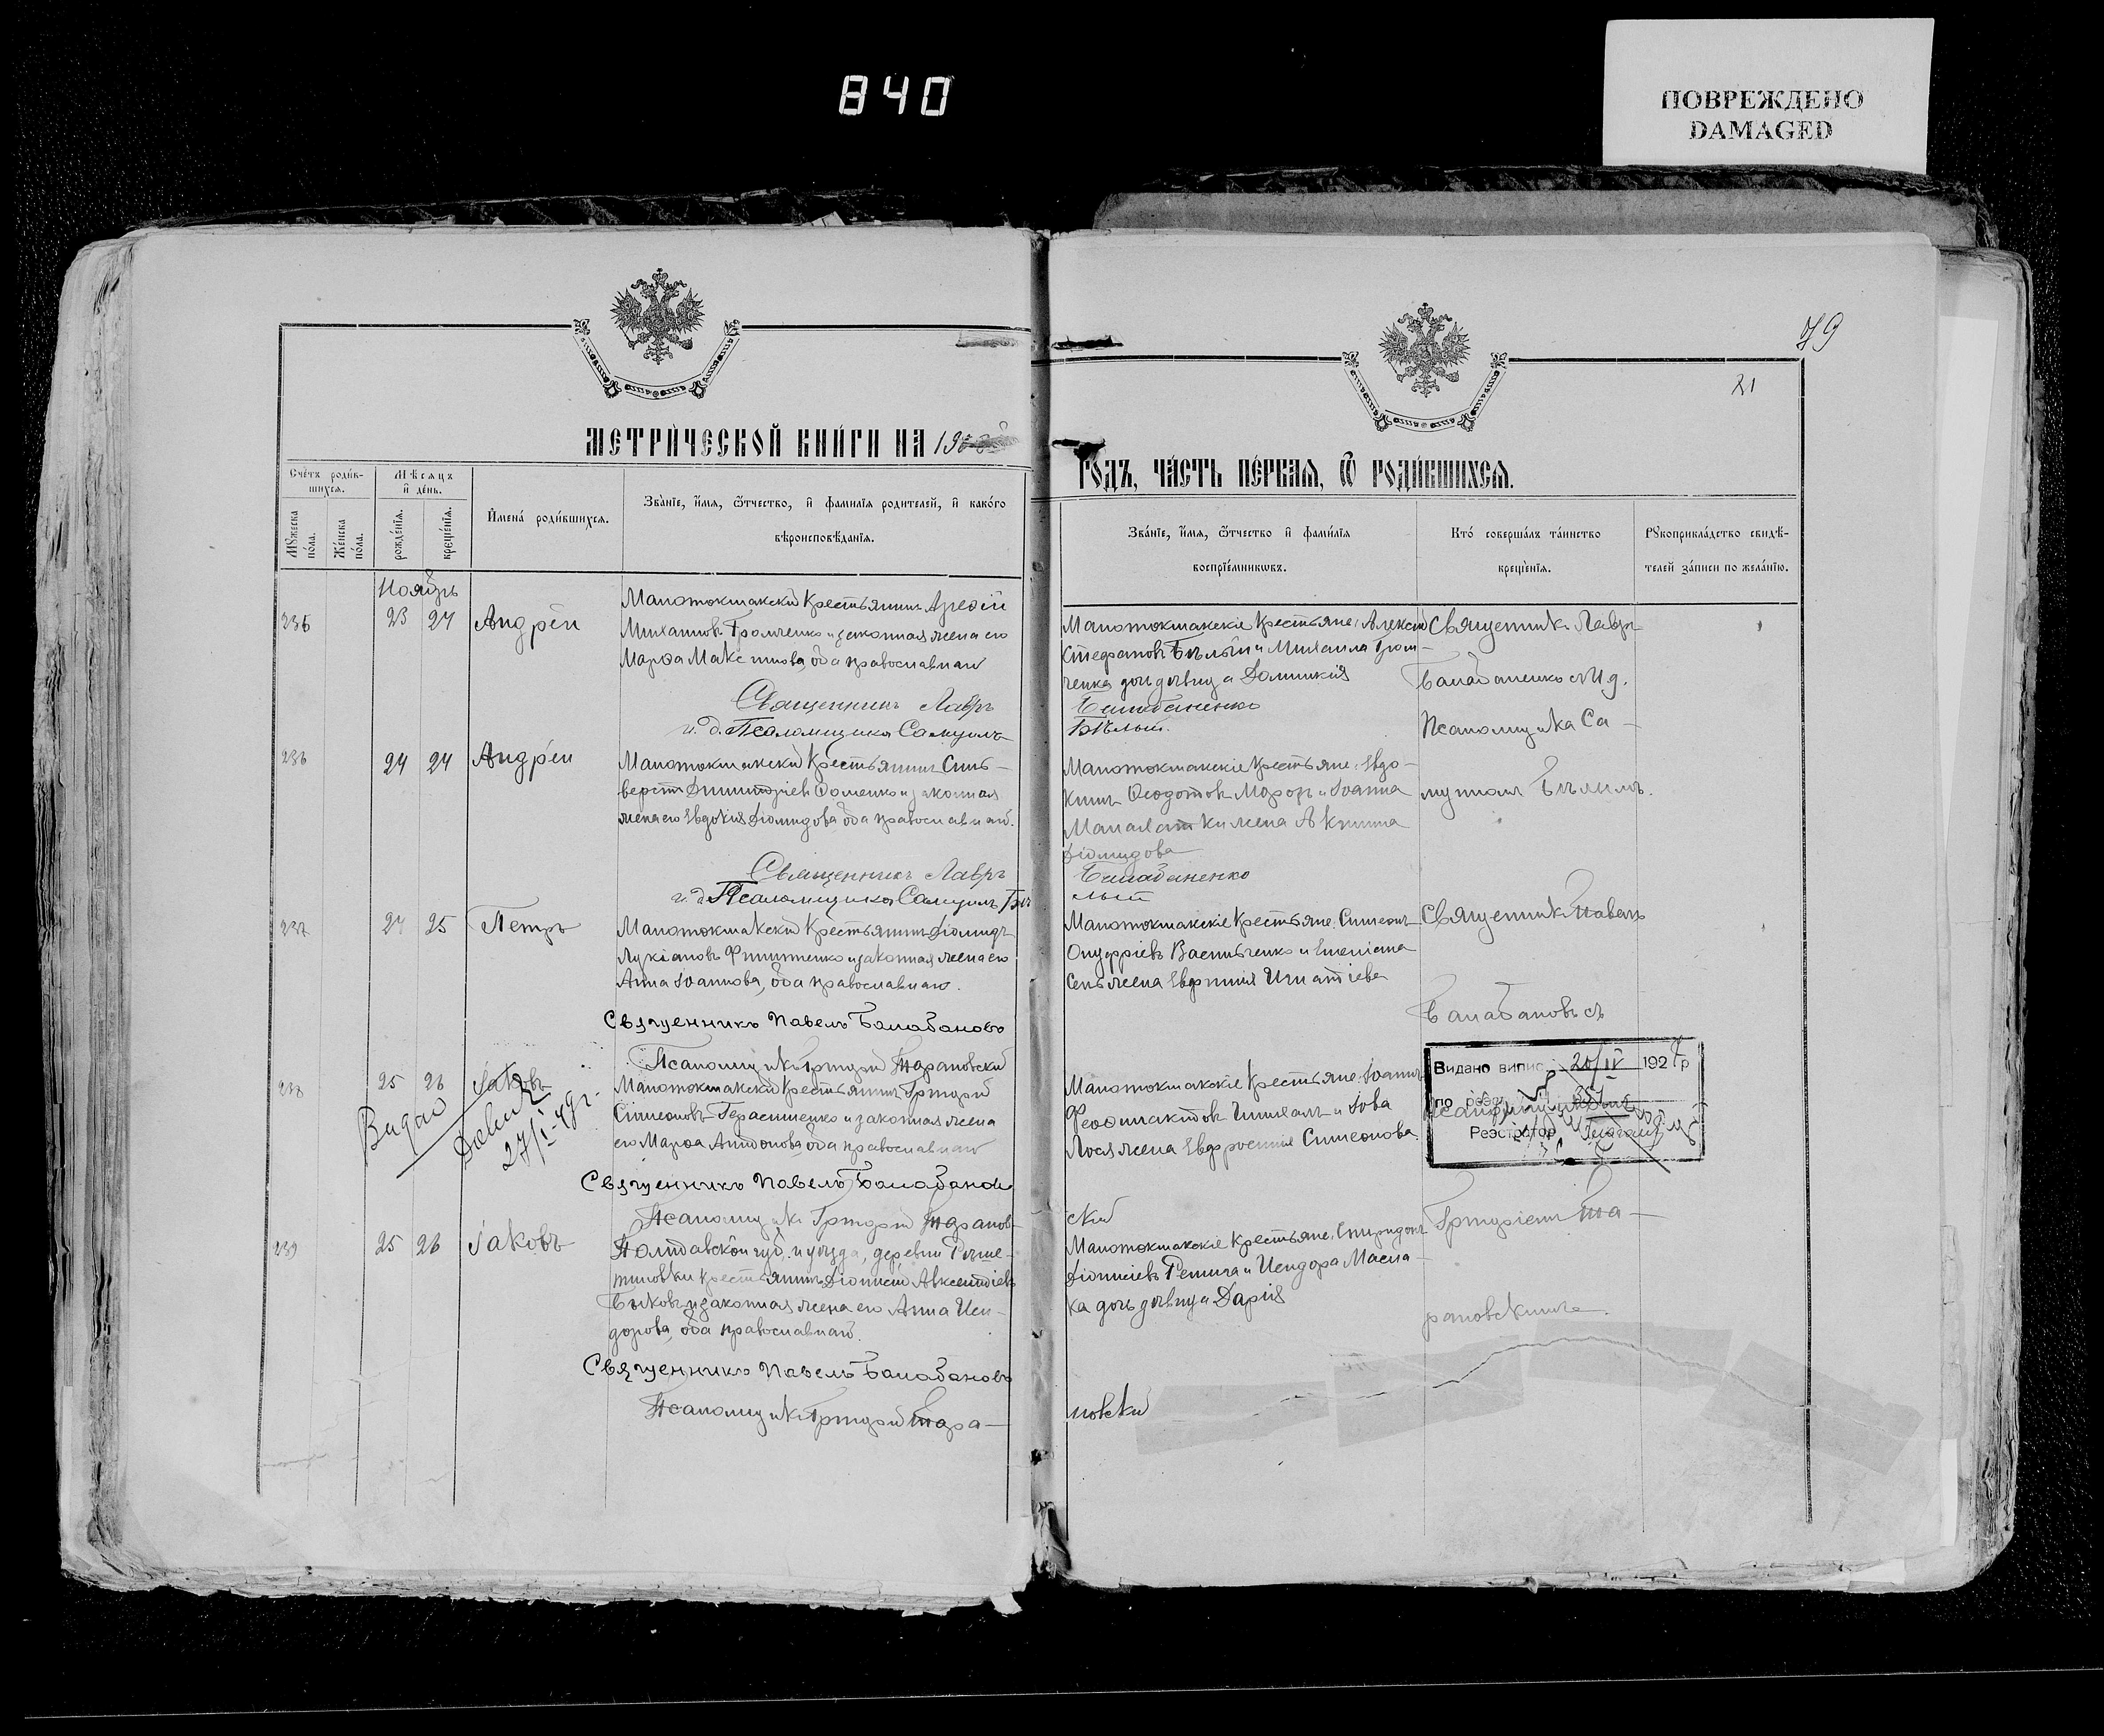 840
ПОВРЕЖДЕНО
DAMAGED
79
21
МЕТРИ́ЧЕСКОЙ КНИ́ГИ НА 19
ГОДЪ, ЧА́СТЬ ПЕ́РВАЯ, Ѿ РОДИ́ВШИХСЯ.
Сче́тъ роди́в-
шихся.
Мѣ́сяцъ
и де́нь.
Му́жеска
по́ла.
Же́нска
по́ла.
рожде́нїя.
креще́нїя.
И́мена́ роди́вшихся.
Зва́нїе, и́мя, ѻ́тчество, и фами́лїя родителей, и како́го
вѣроисповѣ́данїя.
Зва́нїе, и́мя, ѻ́тчество и фами́лїя
воспрїе́мниковъ.
Кто́ соверша́лъ та́инство
креще́нїя.
Рукоприкла́дство свидѣ́-
телей за́писи по жела́нїю.
Ноябрь
235 23 24 Андрей
Малотокмакскій крестьянинъ
Михаиловъ Громченко и законная жена его
Марѳа Макси мова, оба православные
Священникъ Лавръ
и. д. Псаломщика Самуилъ
Малотокмакскіе крестьяне: Алексій
Стефановъ Бѣлый и Михаила Гром-
ченка дочь дѣвица Домникія
Балабаненко
Бѣлый.
Священникъ Лавръ
Балабаненко съ и. д.
Псаломщика Са-
236 24 24 Андрей
Малотокмакскій крестьянинъ Силь-
верстъ Димитріевъ Фоменко и законная
жена его Евдокія Діомидова, оба православные.
Священникъ Лавръ
и. д. Псаломщика Самуилъ Бѣ
Малотокмакскіе крестьяне: Евдо-
кимъ Ѳеодотовъ Морозъ и Іоанна
жена Акилина
Діомидова
Балабаненко
лый
муиломъ Бѣлымъ.
237 24 25 Петръ
Малотокмакскій крестьянинъ Діомидъ
Лукіановъ Филипенко и законная жена его
Анна Іоаннова, оба православные.
Священникъ Павелъ Балабановъ
Псаломщикъ Григорій Тарановскій
Малотокмакскіе крестьяне: Симеонъ
Онуфріевъ Васильченко и
жена Евфимія Игнатіева
Священникъ Павелъ
Балабановъ съ
238 25 26 Іаковъ
Видано
27/I-49г.
Малотокмакскій крестьянинъ Григорій
Симеоновъ Герасименко и законная жена
его Марѳа Антонова, оба православные
Священникъ Павелъ Балабановъ
Псаломщикъ Григорій Таранов-
Малотокмакскіе крестьяне: Іоаннъ
Феофилактовъ и Іова
Лося жена Евфросинія Симеонова.
скій
Видано випис 20/IV 1927р
по реєс. 351
Реэстратор
239 25 26 Іаковъ
Полтавской губ. и уѣзда, деревни Рѣше-
тиловки крестьянинъ Діонисій Авксентіевъ
Быковъ и законная жена его Анна Иси-
дорова, оба православные.
Священникъ Павелъ Балабановъ
Псаломщикъ Григорій Тара-
Малотокмакскіе крестьяне: Спиридонъ
Діонисіевъ Репила и Исидора Масла-
ка дочь дѣвица Дарія
новскій
Григоріемъ Та-
рановскимъ.